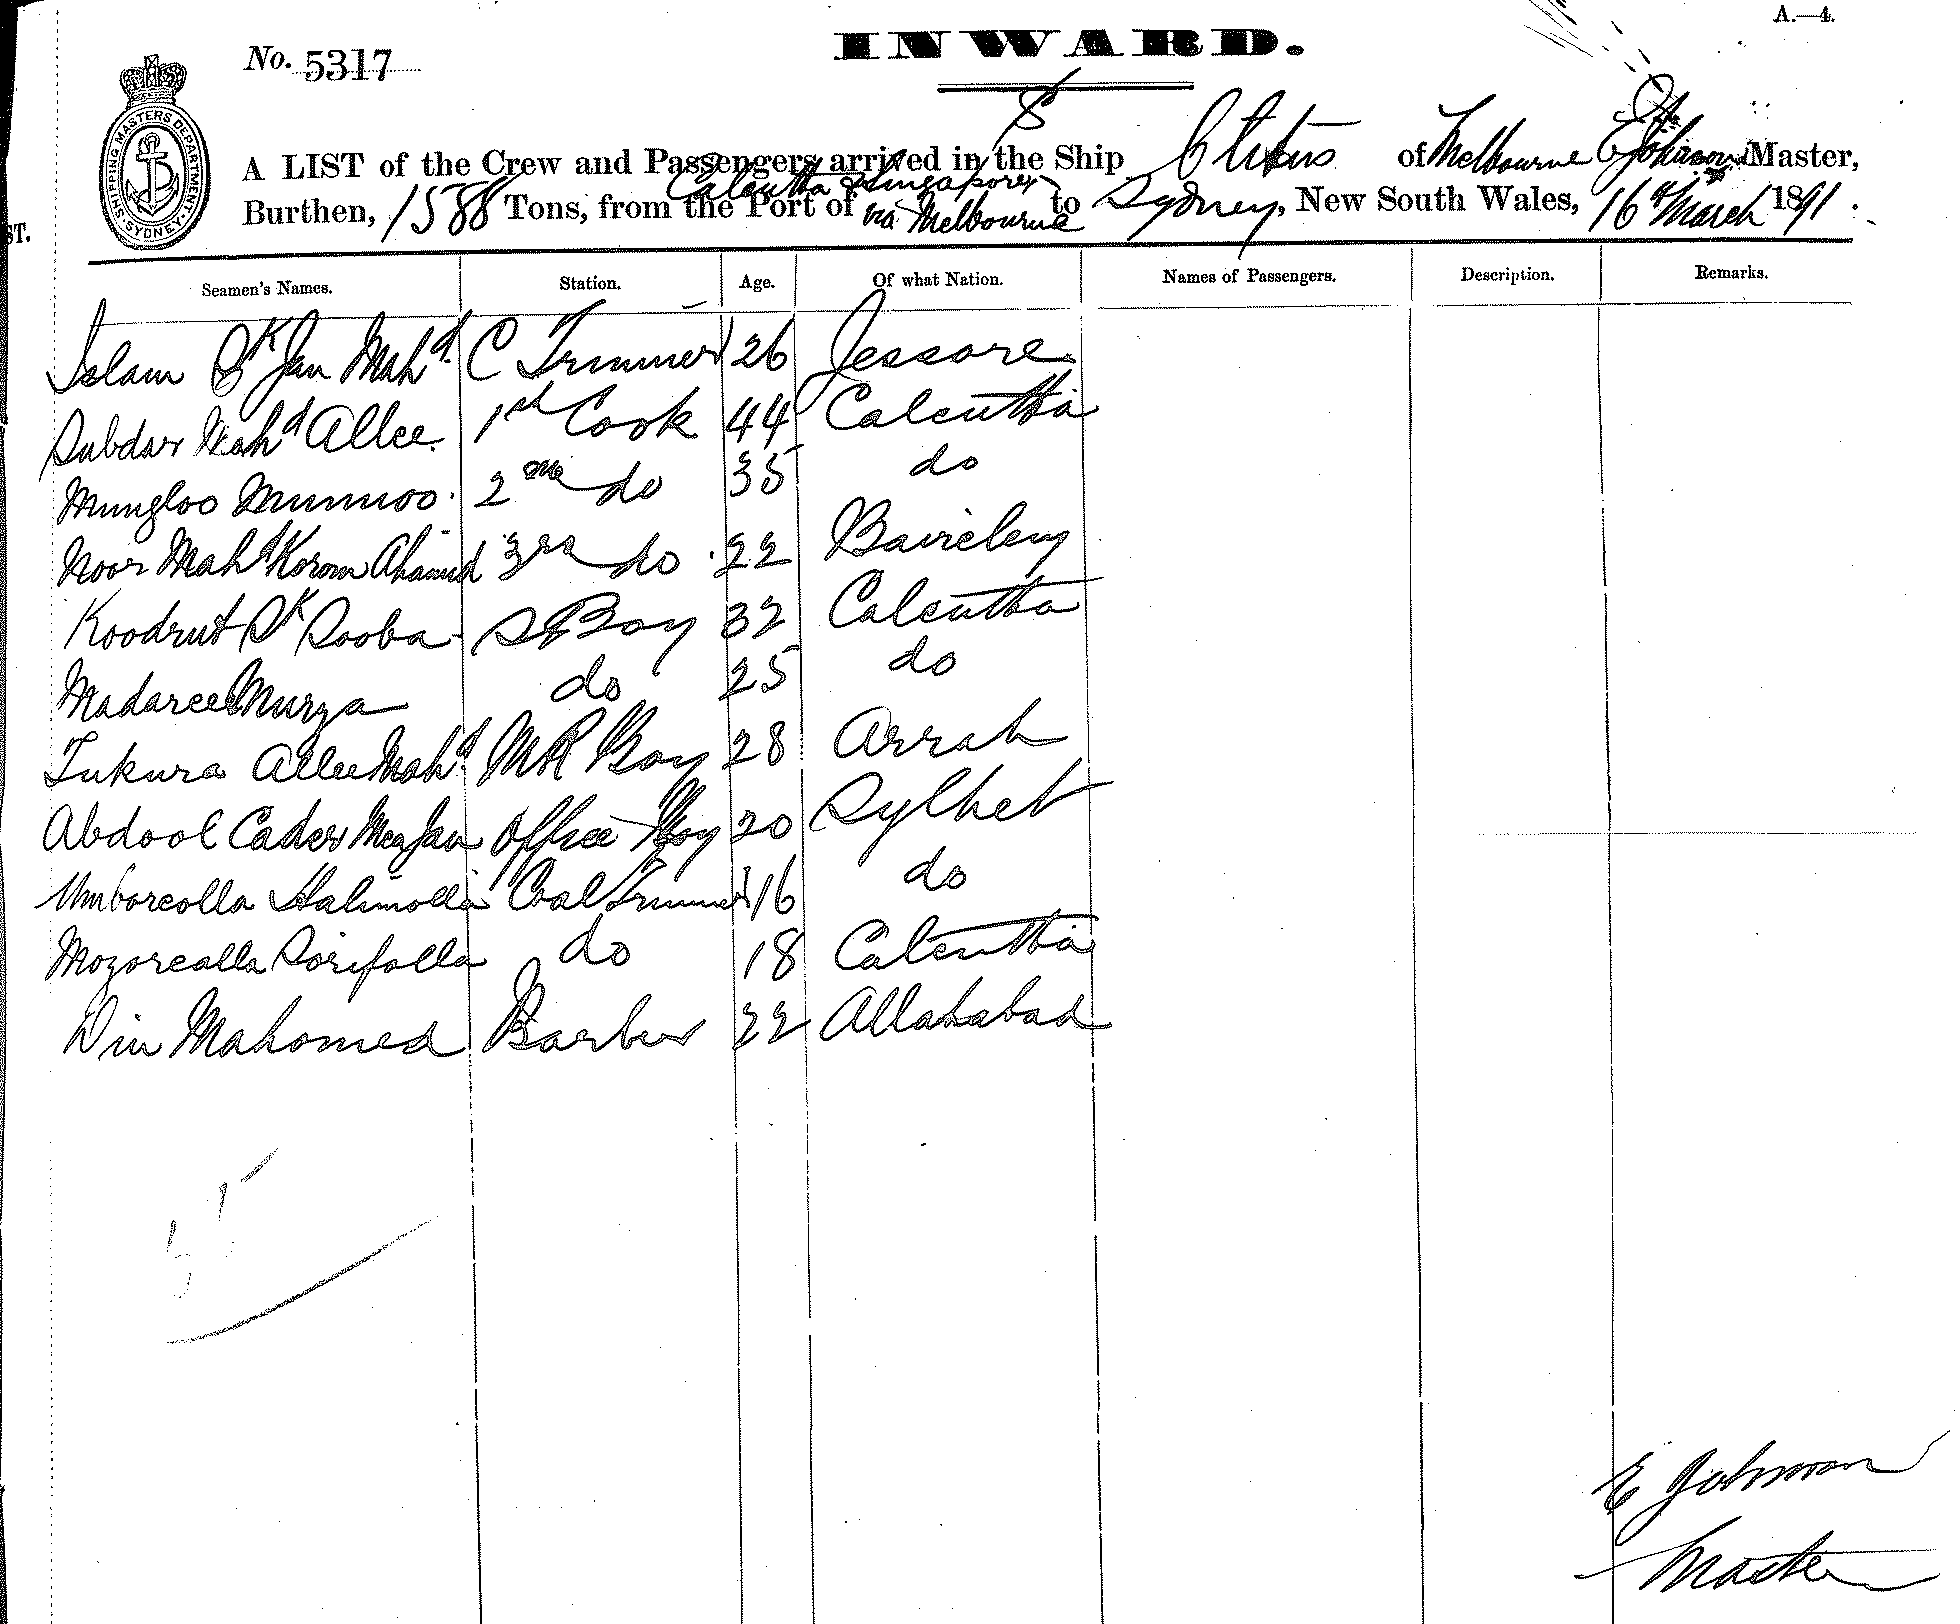 A.—4.
No. 5317
INWARD.
SHIPPING MASTERS DEPARTMENT SYDNEY
S
A LIST of the Crew and Passengers arrived in the Ship Clitus of Melbourne E Johnson Master,
Calcutta & Singapore
Burthen, 1588 Tons, from the Port of via Melbourne to Sydney, New South Wales, 16th March 1891.
ST.
Seamen's Names. Station. Age. Of what Nation. Names of Passengers. Description. Remarks.
Islam Sk Jan Mahd. C Trimmer 26 Jessore
Subdar Mahd Allee. 1st Cook 44 Calcutta
Mungloo Munnoo. 2nd do 35 do
Noor Mahd Korom Ahamed 3rd do 22 Baireley
Koodrut Sk Sooba S Boy 32 Calcutta
Madaree Murza do 25 do
Tukura Allee Mahd. M R Boy 28 Arrah
Abdool Cader Meajan Office Boy 20 Sylhet
Umboreolla Halimolla Coal Trimmer 16 do
Mozoreolla Sorifolla do 18 Calcutta
Din Mahomed Barber 22 Allahabad
E Johnson
Master